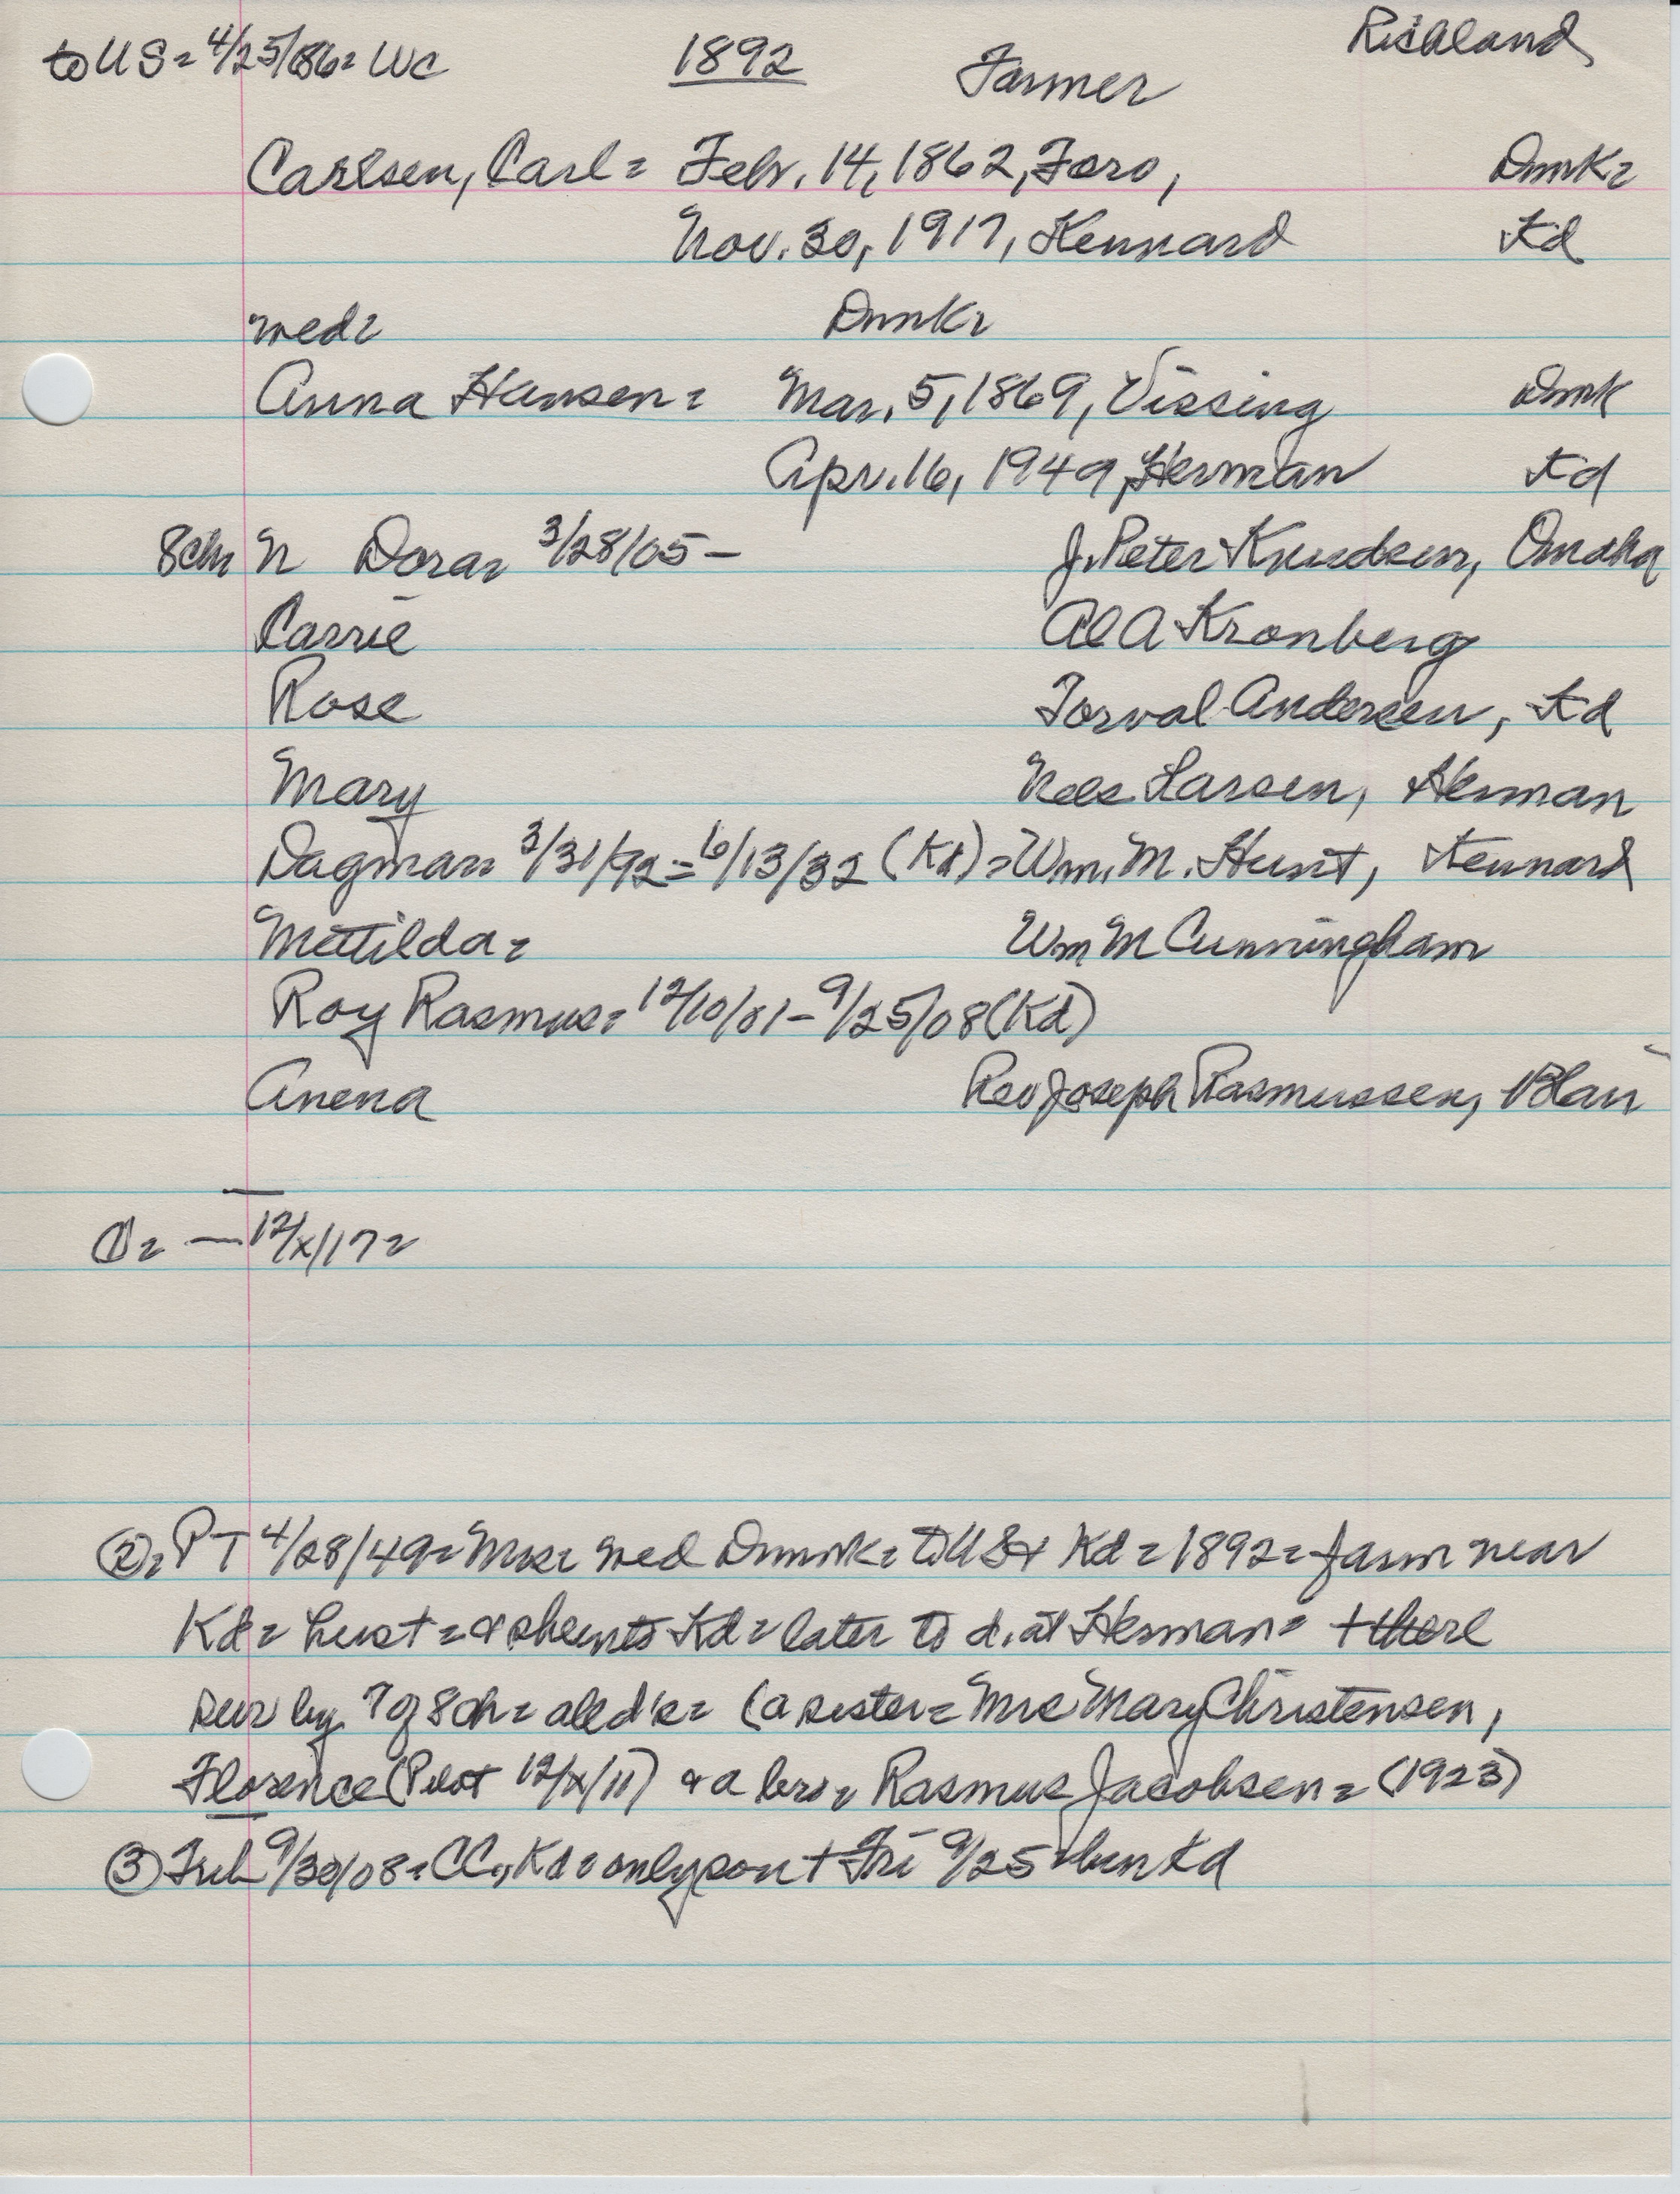 to US = 4/25/86 = WC 1892 Farmer Richland
Carlsen, Carl = Febr. 14, 1862, Foro, Dnmk =
Nov. 30, 1917, Kennard Kd
wed = Dnmk =
Anna Hansen = Mar. 5, 1869, Vissing Dnmk
Apr. 16, 1949, Herman Kd
8ch = N Dora = 3/28/05 - J. Peter Knudsen, Omaha
Carrie Al A Kronberg
Rose Torval Andersen, Kd
Mary Nels Larsen, Herman
Dagmar = 3/31/92 = 6/13/32 (Kd) = Wm. M. Hunt, Kennard
Matilda = Wm M Cunningham
Roy Rasmus = 12/10/01 - 9/25/08 (Kd)
Anena Rev Joseph Rasmussen, Blair
① = — 12/x/17 =
② = PT 4/28/49 = Mrs = wed Dnmk = to US + Kd = 1892 = farm near
Kd = & she into Kd = later to d. at Herman = + there
sur by 7 of 8 ch = all d's = (a sister = Mrs Mary Christensen,
Florence (Pilot 12/x/11) & a bro = Rasmus Jacobsen = (1923)
③ 9/30/08 = CC, Kd = only son + Fri 9/25 bur Kd